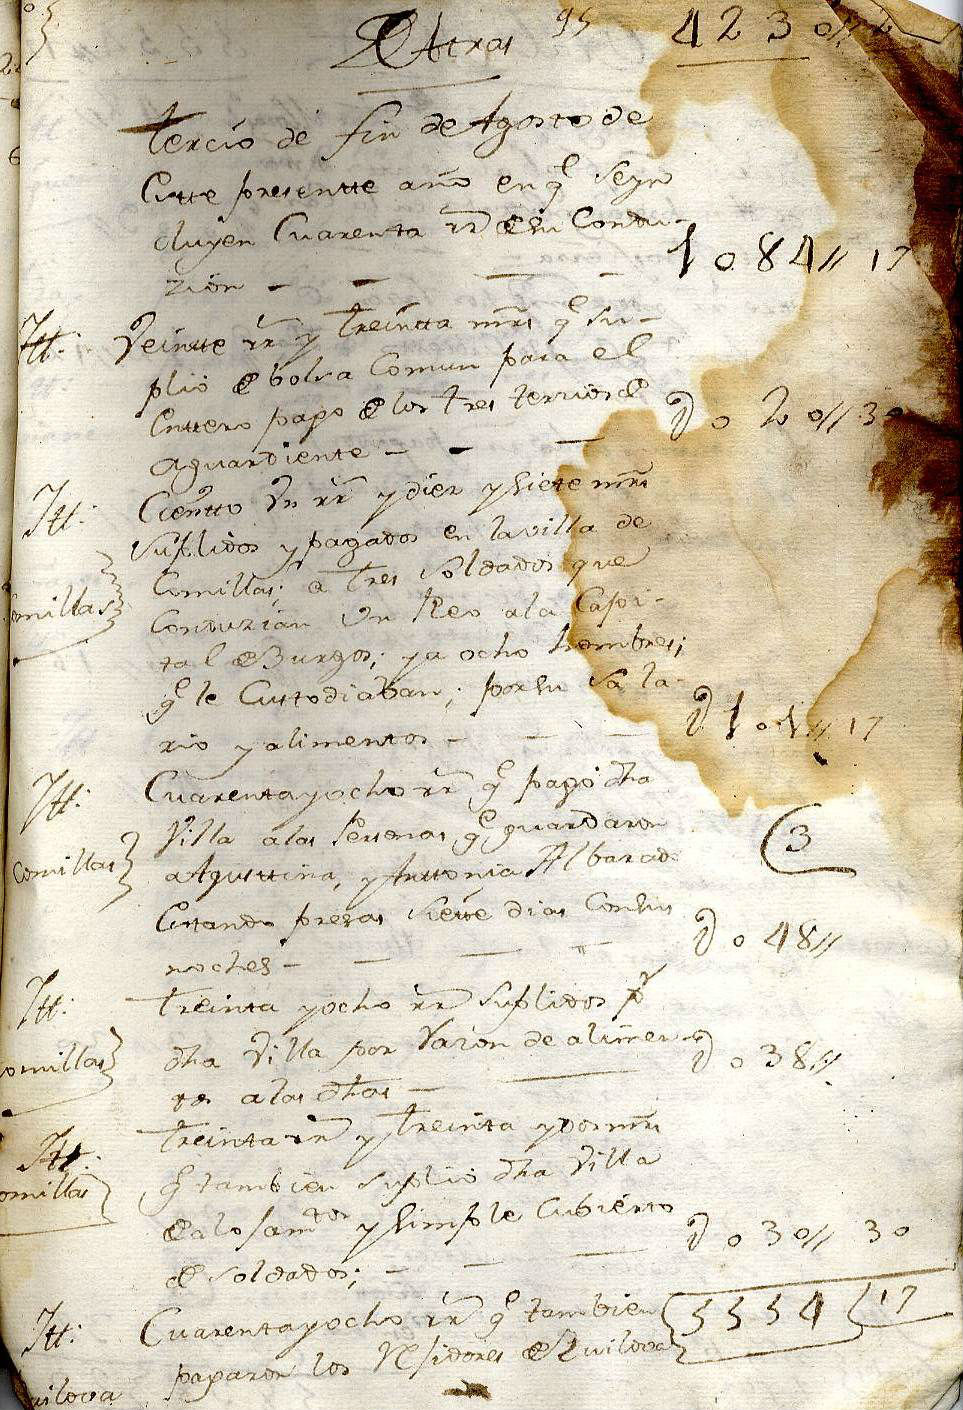 De Atras 95 4230//
tercio de fin de Agosto de
Este presentte año en q.e Seyn
cluyen Cuarenta rr.s de su Condu-
zion - - - - 1084// 17
Itt: Veintte rr.s y treintta mrs q.e su-
plió de bolsa Comun para el
Enttero pago de los tres terzios de
Aguardiente - - - 0020// 30
Itt: Cientto Vn rr.s y diez y siete mrs
suplidos y pagados en la villa de
Comillas; a tres soldados que
Comillas
Conduzian Un Reo a la Capi-
tal de Burgos; y a ocho hombres;
q.e le Custodiaban; por su sala-
rio y alimentos - - - 0101// 17
Itt: Cuarenta y ocho rr.s q.e pagó dha
Villa a las Personas q.e guardaron
Comillas
a Agusttina, y Anttonia Albarado
(3
Estando presas Siette dias Con sus
noches - - - - 0048//
Itt: treinta y ocho rr.s suplidos p.r
dha Villa por razon de alimen-
omillas
tos a las dhas - - 0038//
Itt: treinta rr.s y treinta y dos mrs
q.e tambien suplió dha Villa
omillas
y simple Cubierto
de soldados; - - - 0030// 30
Itt: Cuarenta y ocho rr.s q.e tambien 5554 17
pagaron los Rexidores de Ruiloba
uiloba